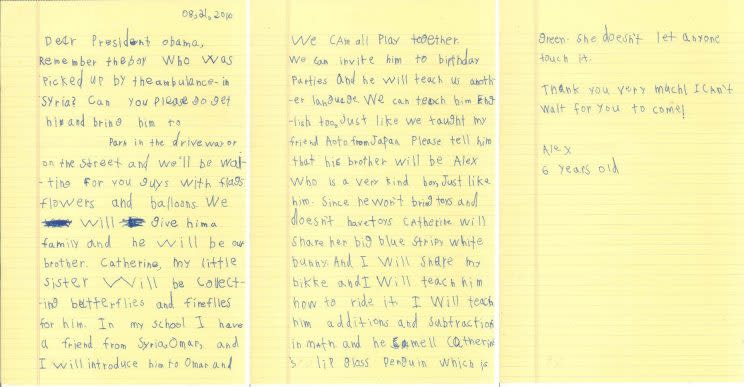 08,21,2016
Dear President obama,
Remember the boy who was
picked up by the ambulance in
Syria? Can you please go get
him and bring him to
Park in the driveway or
on the street and we'll be wai-
-ting for you guys with flags
flowers and balloons. We
will give him a
family and he will be our
brother. Catherine, my little
sister will be collect-
-ing butterflies and fireflies
for him. In my school I have
a friend from Syria, Omar, and
I will introduce him to Omar and
We can all play together.
We can invite him to birthday
parties and he will teach us anoth-
-er language. We can teach him Eng-
-lish too, Just like we taught my
friend Aoto from Japan Please tell him
that his brother will be Alex
who is a very kind boy, Just like
him. Since he won't bring toys and
doesn't have toys Catherine will
share her big blue stripy white
bunny. And I will share my
bikke and I will teach him
how to ride it. I will teach
him additions and subtractions
in math and he smell Catherine
's lip gloss penguin which is
green. she doesn't let anyone
touch it.
Thank you very much! I can't
wait for you to come!
Alex
6 years old